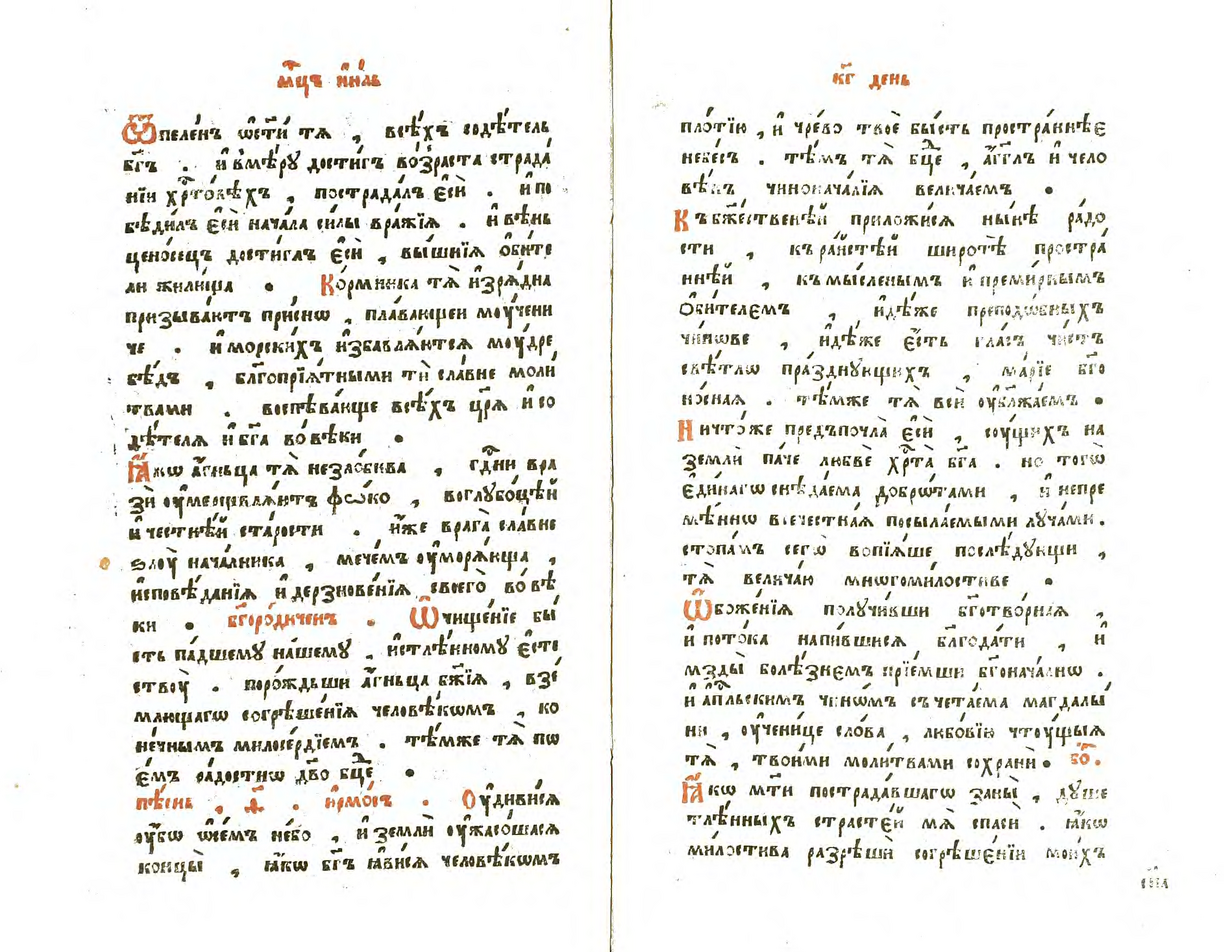 мⷭ҇цъ і҆ꙋ́лїѧ
Ѿпеле́нъ ѡ҆ст҃и тѧ̀ , всѣ́хъ содѣ́тель
бг҃ъ . и҆вмѣ́рꙋ дости́гъ во́зраста страда́
нїи хрⷭ҇то́вѣхъ , пострада́лъ є҆сѝ . и҆ по
бѣди́лъ є҆сѝ нача́ла си́лы вра́жїѧ . и҆ вѣ́нь
ценосецъ дости́глъ є҆сѝ , вы́шнїѧ ѻ҆би́те
ли жили́ща . Ко́рмника тѧ̀ и҆зрѧ́дна
призыва́ютъ при́снѡ , пла́вающеи моу́чени
че . и҆ морски́хъ и҆збавлѧ́ютсѧ моу́дре
бѣ́дъ , бл҃гопрїѧ́тными тѝ сла́вне моли
твами . воспѣва́юще всѣ́хъ цр҃ѧ̀ и҆ со
дѣ́телѧ и҆ бг҃а во́ вѣки .
Ꙗ҆́кѡ а҆́гньца тѧ̀ незло́бива , гдⷭ҇ни вра
зѝ оу҆мерщвлѧ́ютъ фѡ́ко , воглубо́цѣй
и҆ че́стнѣй ста́рости . и҆́же врага̀ сла́вне
ѕлоу̀ нача́лника , мече́мъ оу҆морѧ́юща ,
и҆сповѣ́данїѧ и҆ дерзнове́нїѧ своего̀ во́ вѣ
ки . бг҃оро́диченъ . Ѡ҆чище́нїе бы́
сть па́дшемꙋ на́шемꙋ , и҆стлѣ́нномꙋ є҆сте
ствоу̀ . поро́ждьши а҆́гньца бж҃їѧ , взе́
млющагѡ согрѣше́нїѧ человѣ́кѡмъ , ко
не́чнымъ милосе́рдїемъ . тѣ́мже тѧ̀ по
є҆́мъ ра́достнѡ дв҃о бцⷣе .
пѣ́снь , ѳ҃ . і҆рмо́съ . Оу҆диви́сѧ
оу҆́бѡ ѡ҆се́мъ не́бо , и҆ землѝ оу҆жасо́шасѧ
концы̀ , ꙗ҆́кѡ бг҃ъ ꙗ҆ви́сѧ человѣ́кѡмъ
к҃г день
пло́тїю , и҆ чре́во твоѐ бы́сть простра́ннѣе
небе́съ . тѣ́мъ тѧ̀ бцⷣе , а҆́гг҃лъ и҆ чело
вѣ́къ чинонача́лїѧ велича́емъ .
Къ бж҃е́ственѣй приложи́сѧ ны́нѣ ра́до
сти , къ ра́йстѣй широтѣ̀ простра́
ннѣй , къ мы́сленымъ и҆ преми́рнымъ
ѻ҆би́телемъ , и҆дѣ́же преподо́бныхъ
чи́нове , и҆дѣ́же є҆́сть гла́съ чи́стъ
свѣ́тлѡ пра́зднꙋющихъ , марі́е бг҃о
но́сная . тѣ́мже тѧ̀ всѝ оу҆блажа́емъ .
Ничто́же предъпочла̀ є҆сѝ , соу́щихъ на
землѝ па́че любвѐ хрⷭ҇та̀ бг҃а . но тогѡ̀
є҆ди́нагѡ снѣда́ема добро́тами , и҆ непре
мѣ́ннѡ всече́стная посыла́емыми лꙋча́ми .
стопа́мъ сегѡ̀ вопїѧ́ше послѣ́дꙋющи ,
тѧ̀ велича́ю многоми́лостиве .
Ѡ҆боже́нїѧ получи́вши бг҃отво́рная ,
и҆ пото́ка напи́вшисѧ бл҃года́ти , и҆
мзды̀ болѣ́знемъ прїе́мши бг҃онача́лнѡ .
и҆ а҆пⷭ҇льскимъ чи́нѡмъ съчета́ема магдалы́
ни , оу҆чени́це сло́ва , любо́вїю чтоу́щыѧ
тѧ̀ , твои́ми моли́твами сохранѝ . бо҃ .
Ꙗ҆́кѡ мт҃и пострада́вшагѡ за ны̀ , дꙋше
тлѣ́нныхъ страсте́й мѧ̀ спасѝ . ꙗ҆́кѡ
ми́лостива разрѣшѝ согрѣше́нїи мои́хъ